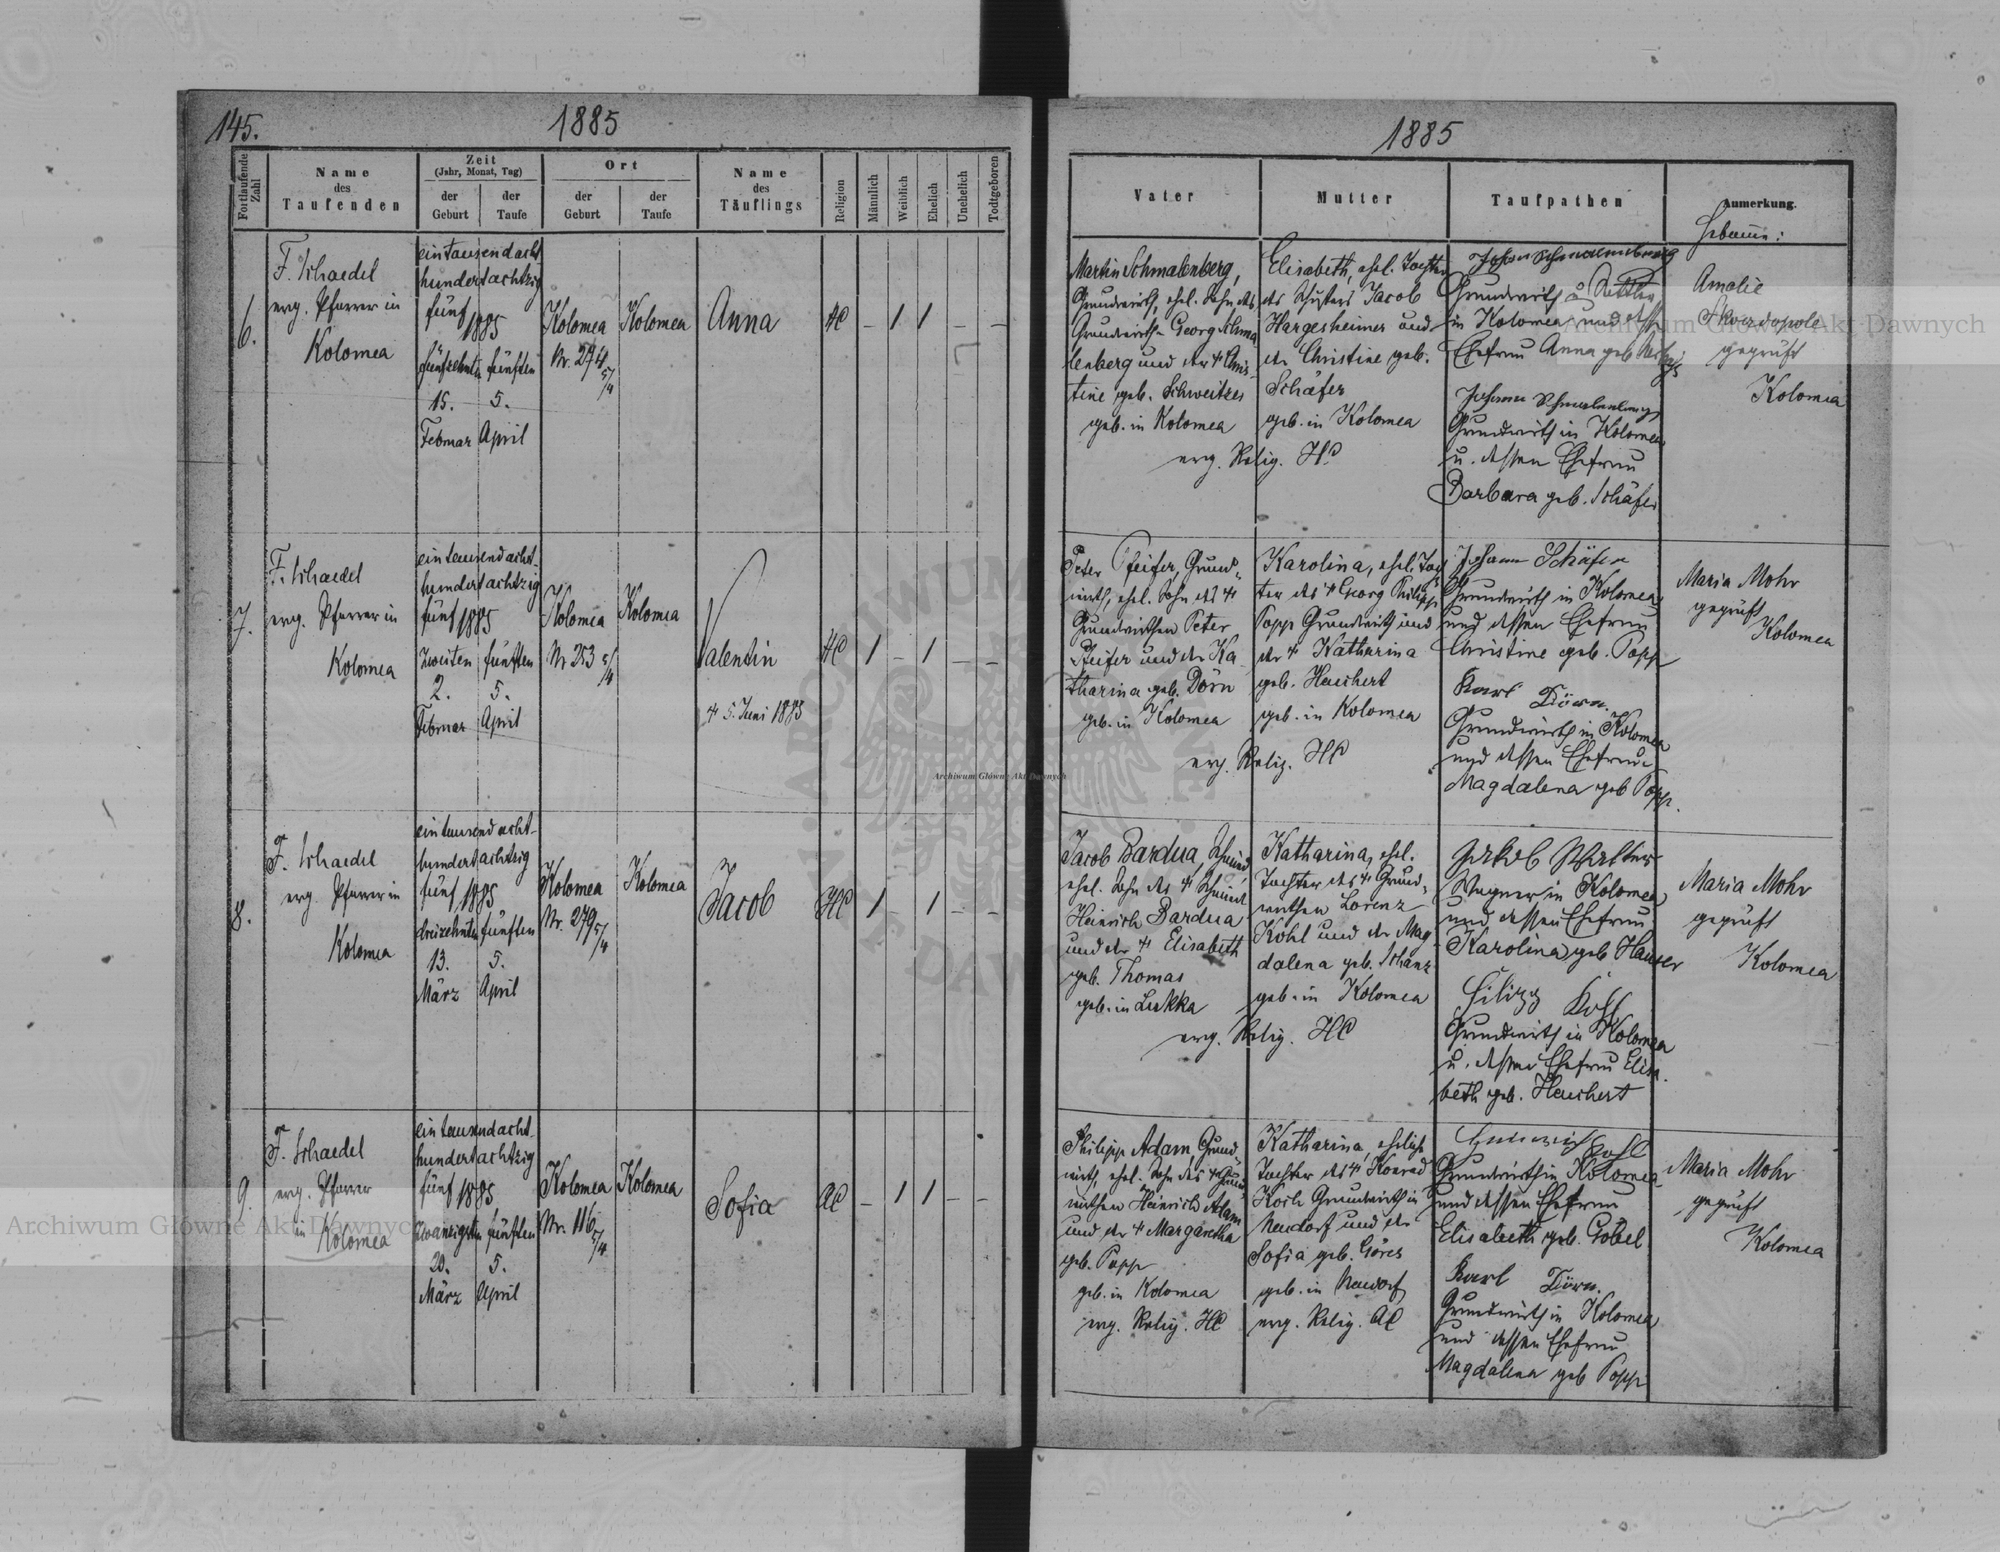 145.
1885
Fortlaufende Zahl
Name
des
Taufenden
Zeit
(Jahr, Monat, Tag)
der
Geburt
der
Taufe
Ort
der
Geburt
der
Taufe
Name
des
Täuflings
Religion
Männlich
Weiblich
Ehelich
Unehelich
Todtgeboren
6.
F. Schaedel
erg. Pfarrer in
Kolomea
eintausendacht
hundertachtzig
fünf 1885
fünfzehnten fünften
15. 5.
Februar April
Kolomea
Nr. 274
5/4
Kolomea
Anna
HC
– 1 1 – –
7.
F. Schaedel
erg. Pfarrer in
Kolomea
eintausendacht-
hundertachtzig
fünf 1885
zweiten fünften
2. 5.
Februar April
Kolomea
Nr 253 5/4
Kolomea
Valentin
† 5. Juni 1885
HC
1 – 1 – –
8.
F. Schaedel
erg. Pfarrer in
Kolomea
eintausendacht-
hundertachtzig
fünf 1885
dreizehnten fünften
13. 5.
März April
Kolomea
Nr. 279 5/4
Kolomea
Jacob
HC
1 1 – –
9.
F. Schaedel
erg. Pfarrer
in Kolomea
eintausendacht-
hundertachtzig
fünf 1885
zwanzigsten fünften
20. 5.
März April
Kolomea
Nr. 116 5/4
Kolomea
Sofia
AC
– 1 1 – –
1885
Vater
Mutter
Taufpathen
Anmerkung.
Hebamme:
Martin Schmalenberg,
Grundwirth, ehel. Sohn des
Grundwirth Georg Schma
lenberg und der † Chris-
tine geb. Schweitzer
geb. in Kolomea
Elisabeth, ehel. Tochter
des Schusters Jacob
Hargesheimer und
der Christine geb.
Schäfer
geb. in Kolomea
erg. Relig. HC
Johann Schmalenberg
Grundwirth
in Kolomea und dessen
Ehefrau Anna geb.
Johann Schmalenberg
Grundwirth in Kolomea
u. dessen Ehefrau
Barbara geb. Schäfer
Amalie
Skwirdopole
geprüft
Kolomea
Peter Pfeifer, Grund-
wirth, ehel. Sohn des †
Grundwirthen Peter
Pfeifer und der Ka
tharina geb. Dörn
geb. in Kolomea
Karolina, ehel. Toch
ter des † Georg Philipp
Popp Grundwirth und
der † Katharina
geb. Heuchert
geb. in Kolomea
erg. Relig. HC
Johann Schäfer
Grundwirth in Kolomea
und dessen Ehefrau
Christine geb. Popp
Karl Dörn.
Grundwirth in Kolomea
und dessen Ehefrau
Magdalena geb Popp.
Maria Mohr
geprüft
Kolomea
Jacob Bardua, Schmied,
ehel. Sohn des † Schmied
Heinrich Bardua
und der † Elisabeth
geb. Thomas
geb. in
Katharina, ehel.
Tochter des † Grund-
wirthen Lorenz
Kohl und der Mag
dalena geb. Schanz
geb. in Kolomea
erg. Relig. HC
Jakob Walter
Wagner in Kolomea
und dessen Ehefrau
Karolina geb Hauser
Filipp Kohl
Grundwirth in Kolomea
u. dessen Ehefrau Elisa
beth geb. Heuchert
Maria Mohr
geprüft
Kolomea
Philipp Adam, Grund-
wirth, ehel. Sohn des † Grund
wirthen Heinrich Adam
und der † Margaretha
geb. Popp
geb. in Kolomea
erg. Relig. HC
Katharina, eheliche
Tochter des † Konrad
Koch Grundwirth in
Neudorf und der
Sofia geb. Göres
geb. in Neudorf
erg. Relig. AC
Heinrich Kohl
Grundwirth in Kolomea
und dessen Ehefrau
Elisabeth geb. Gobel
Karl Dörn.
Grundwirth in Kolomea
und dessen Ehefrau
Magdalena geb Popp
Maria Mohr
geprüft
Kolomea
Archiwum Główne Akt Dawnych
Archiwum Główne Akt Dawnych
Archiwum Główne Akt Dawnych